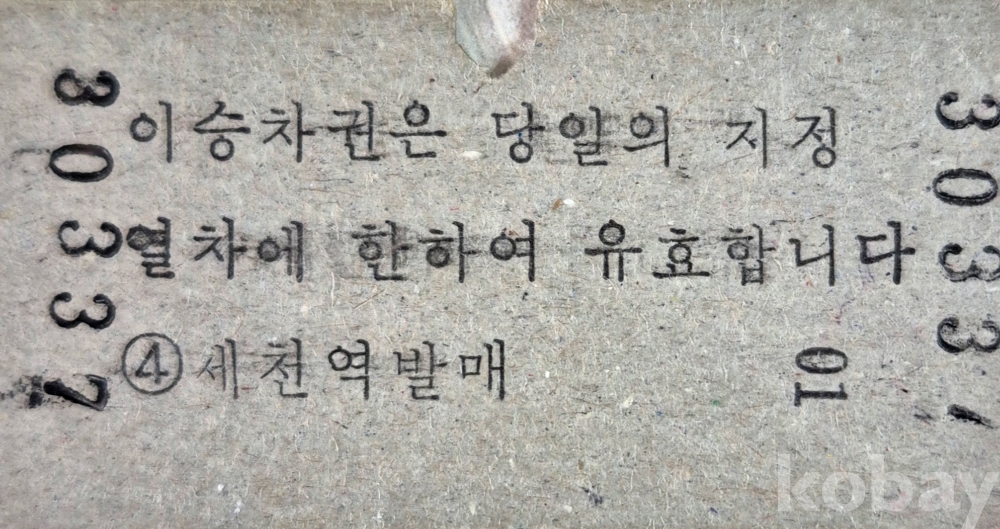 30337
이승차권은 당일의 지정
열차에 한하여 유효합니다
④세천역발매
01
3033
kobay